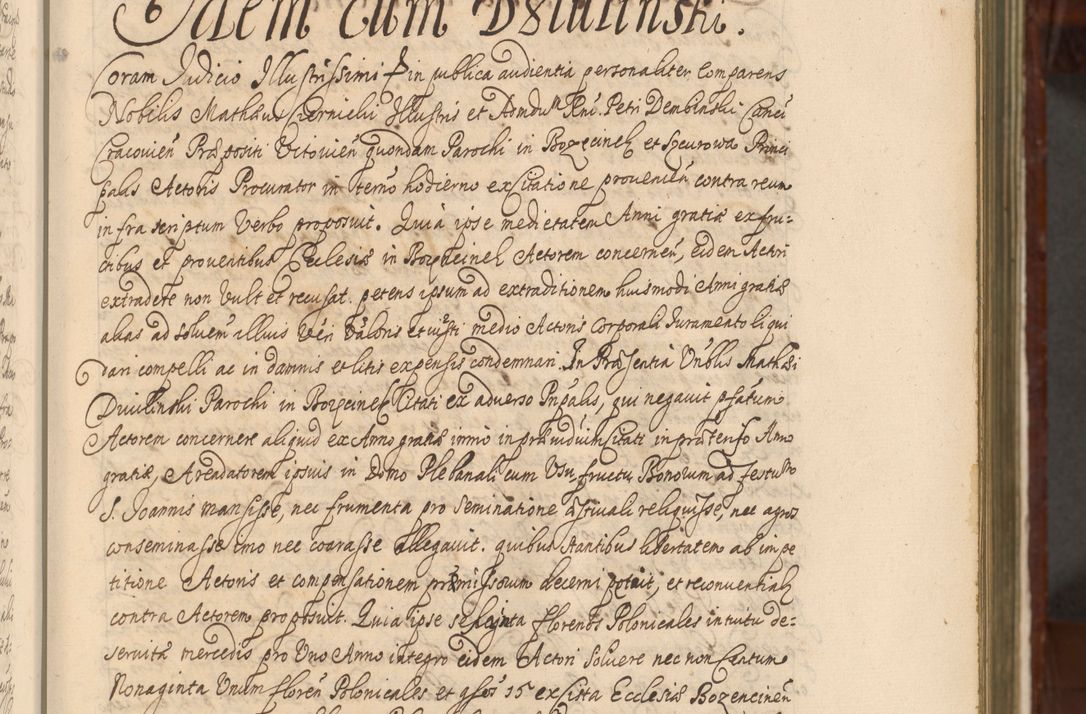 Idem Cum Dziulinski.
Coram Judicio Illustrissimi in publica audientia personaliter Comparens
Nobilis Mathæus Czernicki Illustris et Admdum Rnd. Petri Dembinski Canci
Cracovien Præpositi Vitovien quondam Parochi in Bozęcineh et Szcurowa Princi
palis Actoris Procurator in termō hodierno ex Citatione provenien contra reum
infra scriptum Verbo proposuit. Quia ipse medietatem Anni gratiæ ex fru-
ctibus et proventibus Ecclesiæ in Bozęcineh Actorem concernen, eidem Actori
extradere non Vult et recusat. petens ipsum ad extraditionem huiusmodi Anni gratiæ
alias ad solven illius Veri Valoris et iusti medio Actoris Corporali Juramento liqui
dari compelli ac in damnis et litis expensis condemnari. In Præsentia Vnblis Mathæi
Dziulinski Parochi in Bozęcineh Citati ex adverso Pnpalis, qui negavit psatum
Actorem concernere aliquid ex Anno gratiæ immo in præiudium Citati in prætenso Anno
gratiæ Areadatorem ipsius in Domo Plebanali cum Vsu fructu Bonorum ad festum
S. Joannis mansisse, nec frumenta pro seminatione æstivali reliquisse, nec agros
conseminasse imo nec coarasse allegavit. quibus stantibus libertatem ab impe
titione Actoris et compensationem præmissorum decerni petiit, et reconvential
contra Actorem proposuit. Quia ipse sexaginta florenos Polonicales intuitu de-
servitæ mercedis pro Vno Anno integro eidem Actori solvere nec non Centum
Nonaginta Vnum floren Polonicales et gssos 15 ex Cista Ecclesiæ Bozencinen